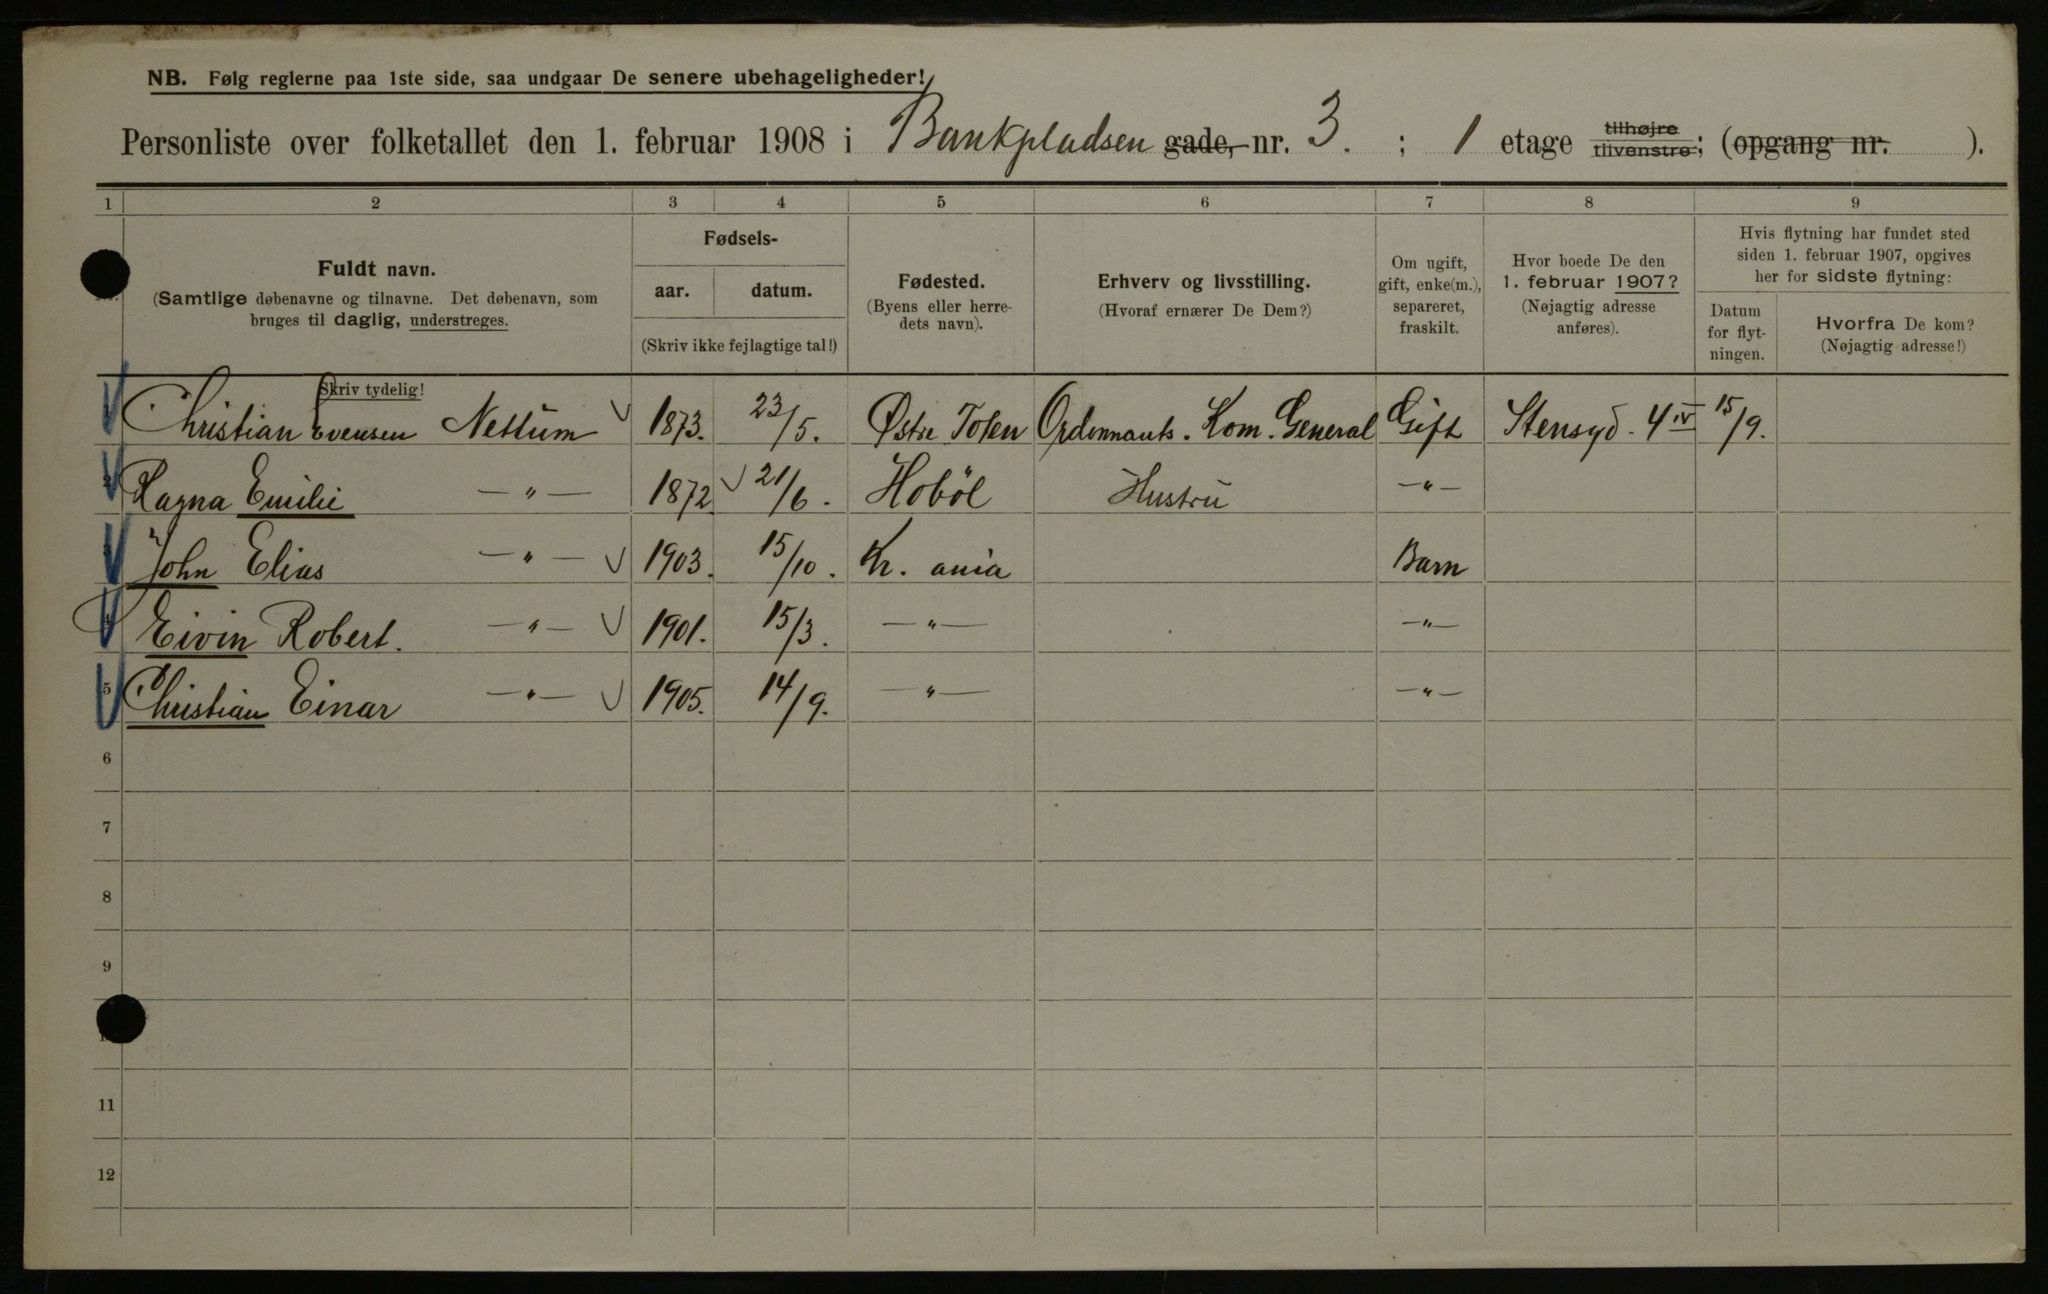 NB. Følg reglerne paa 1ste side, saa undgaar De senere ubehageligheder!
Personliste over folketallet den 1. februar 1908 i Bankpladsen gade, nr. 3. ; 1 etage tilhøjre tilvenstre; (opgang nr. ).
1 2 3 4 5 6 7 8 9
Fuldt navn.
(Samtlige døbenavne og tilnavne. Det døbenavn, som
bruges til daglig, understreges.
Skriv tydelig!
Fødsels-
aar. datum.
(Skriv ikke fejlagtige tal!)
Fødested.
(Byens eller herre-
dets navn).
Erhverv og livsstilling.
(Hvoraf ernærer De Dem?)
Om ugift,
gift, enke(m.),
separeret,
fraskilt.
Hvor boede De den
1. februar 1907?
(Nøjagtig adresse
anføres).
Hvis flytning har fundet sted
siden 1. februar 1907, opgives
her for sidste flytning:
Datum
for flyt-
ningen.
Hvorfra De kom?
(Nøjagtig adresse!)
1 Christian Evensen Nettum 1873. 23/5. Østre Toten Ordonnants. Kom. General Gift Stensgd. 4 IV 15/9.
2 Ragna Emilie —"— 1872 21/6. Hobøl Hustru —"—
3 John Elias —"— 1903. 15/10. Kr. ania Barn
4 Eivin Robert. —"— 1901. 15/3. —"— —"—
5 Christian Einar —"— 1905. 14/9. —"— —"—
6
7
8
9
11
12